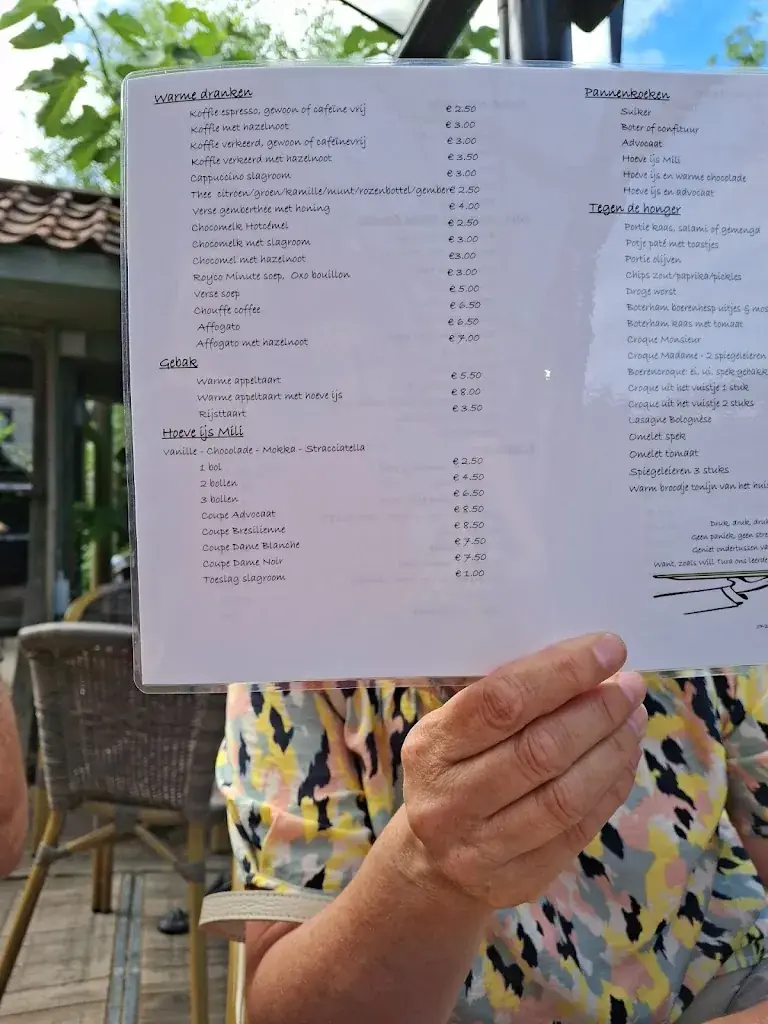 Warme dranken
Koffie espresso, gewoon of cafeïne vrij € 2.50
Koffie met hazelnoot € 3.00
Koffie verkeerd, gewoon of cafeïnevrij € 3.00
Koffie verkeerd met hazelnoot € 3.50
Cappuccino slagroom € 3.00
Thee citroen/groen/kamille/munt/rozenbottel/gember € 2.50
Verse gemberthee met honing € 4.00
Chocomelk Hotcémel € 2.50
Chocomelk met slagroom € 3.00
Chocomel met hazelnoot €3.00
Royco Minute soep, Oxo bouillon € 3.00
Verse soep € 5.00
Chouffe coffee € 6.50
Affogato € 6,50
Affogato met hazelnoot € 7.00
Gebak
Warme appeltaart € 5.50
Warme appeltaart met hoeve ijs € 8.00
Rijsttaart € 3.50
Hoeve ijs Mili
Vanille - Chocolade - Mokka - Stracciatella
1 bol € 2.50
2 bollen € 4.50
3 bollen € 6.50
Coupe Advocaat € 8.50
Coupe Bresilienne € 8.50
Coupe Dame Blanche € 7.50
Coupe Dame Noir € 7.50
Toeslag slagroom € 1.00
Pannenkoeken
Suiker
Boter of confituur
Advocaat
Hoeve ijs Mili
Hoeve ijs en warme chocolade
Hoeve ijs en advocaat
Tegen de honger
Portie kaas, salami of gemengd
Potje paté met toastjes
Portie olijven
Chips zout/paprika/pickles
Droge worst
Boterham boerenhesp uitjes & mos
Boterham kaas met tomaat
Croque Monsieur
Croque Madame - 2 spiegeleieren
Boerencroque: ei, ui, spek gebakk
Croque uit het vuistje 1 stuk
Croque uit het vuistje 2 stuks
Lasagne Bolognèse
Omelet spek
Omelet tomaat
Spiegeleieren 3 stuks
Warm broodje tonijn van het hui
Druk, druk, druk
Geen paniek, geen stre
Geniet ondertussen va
Want, zoals Will Tura ons leerde